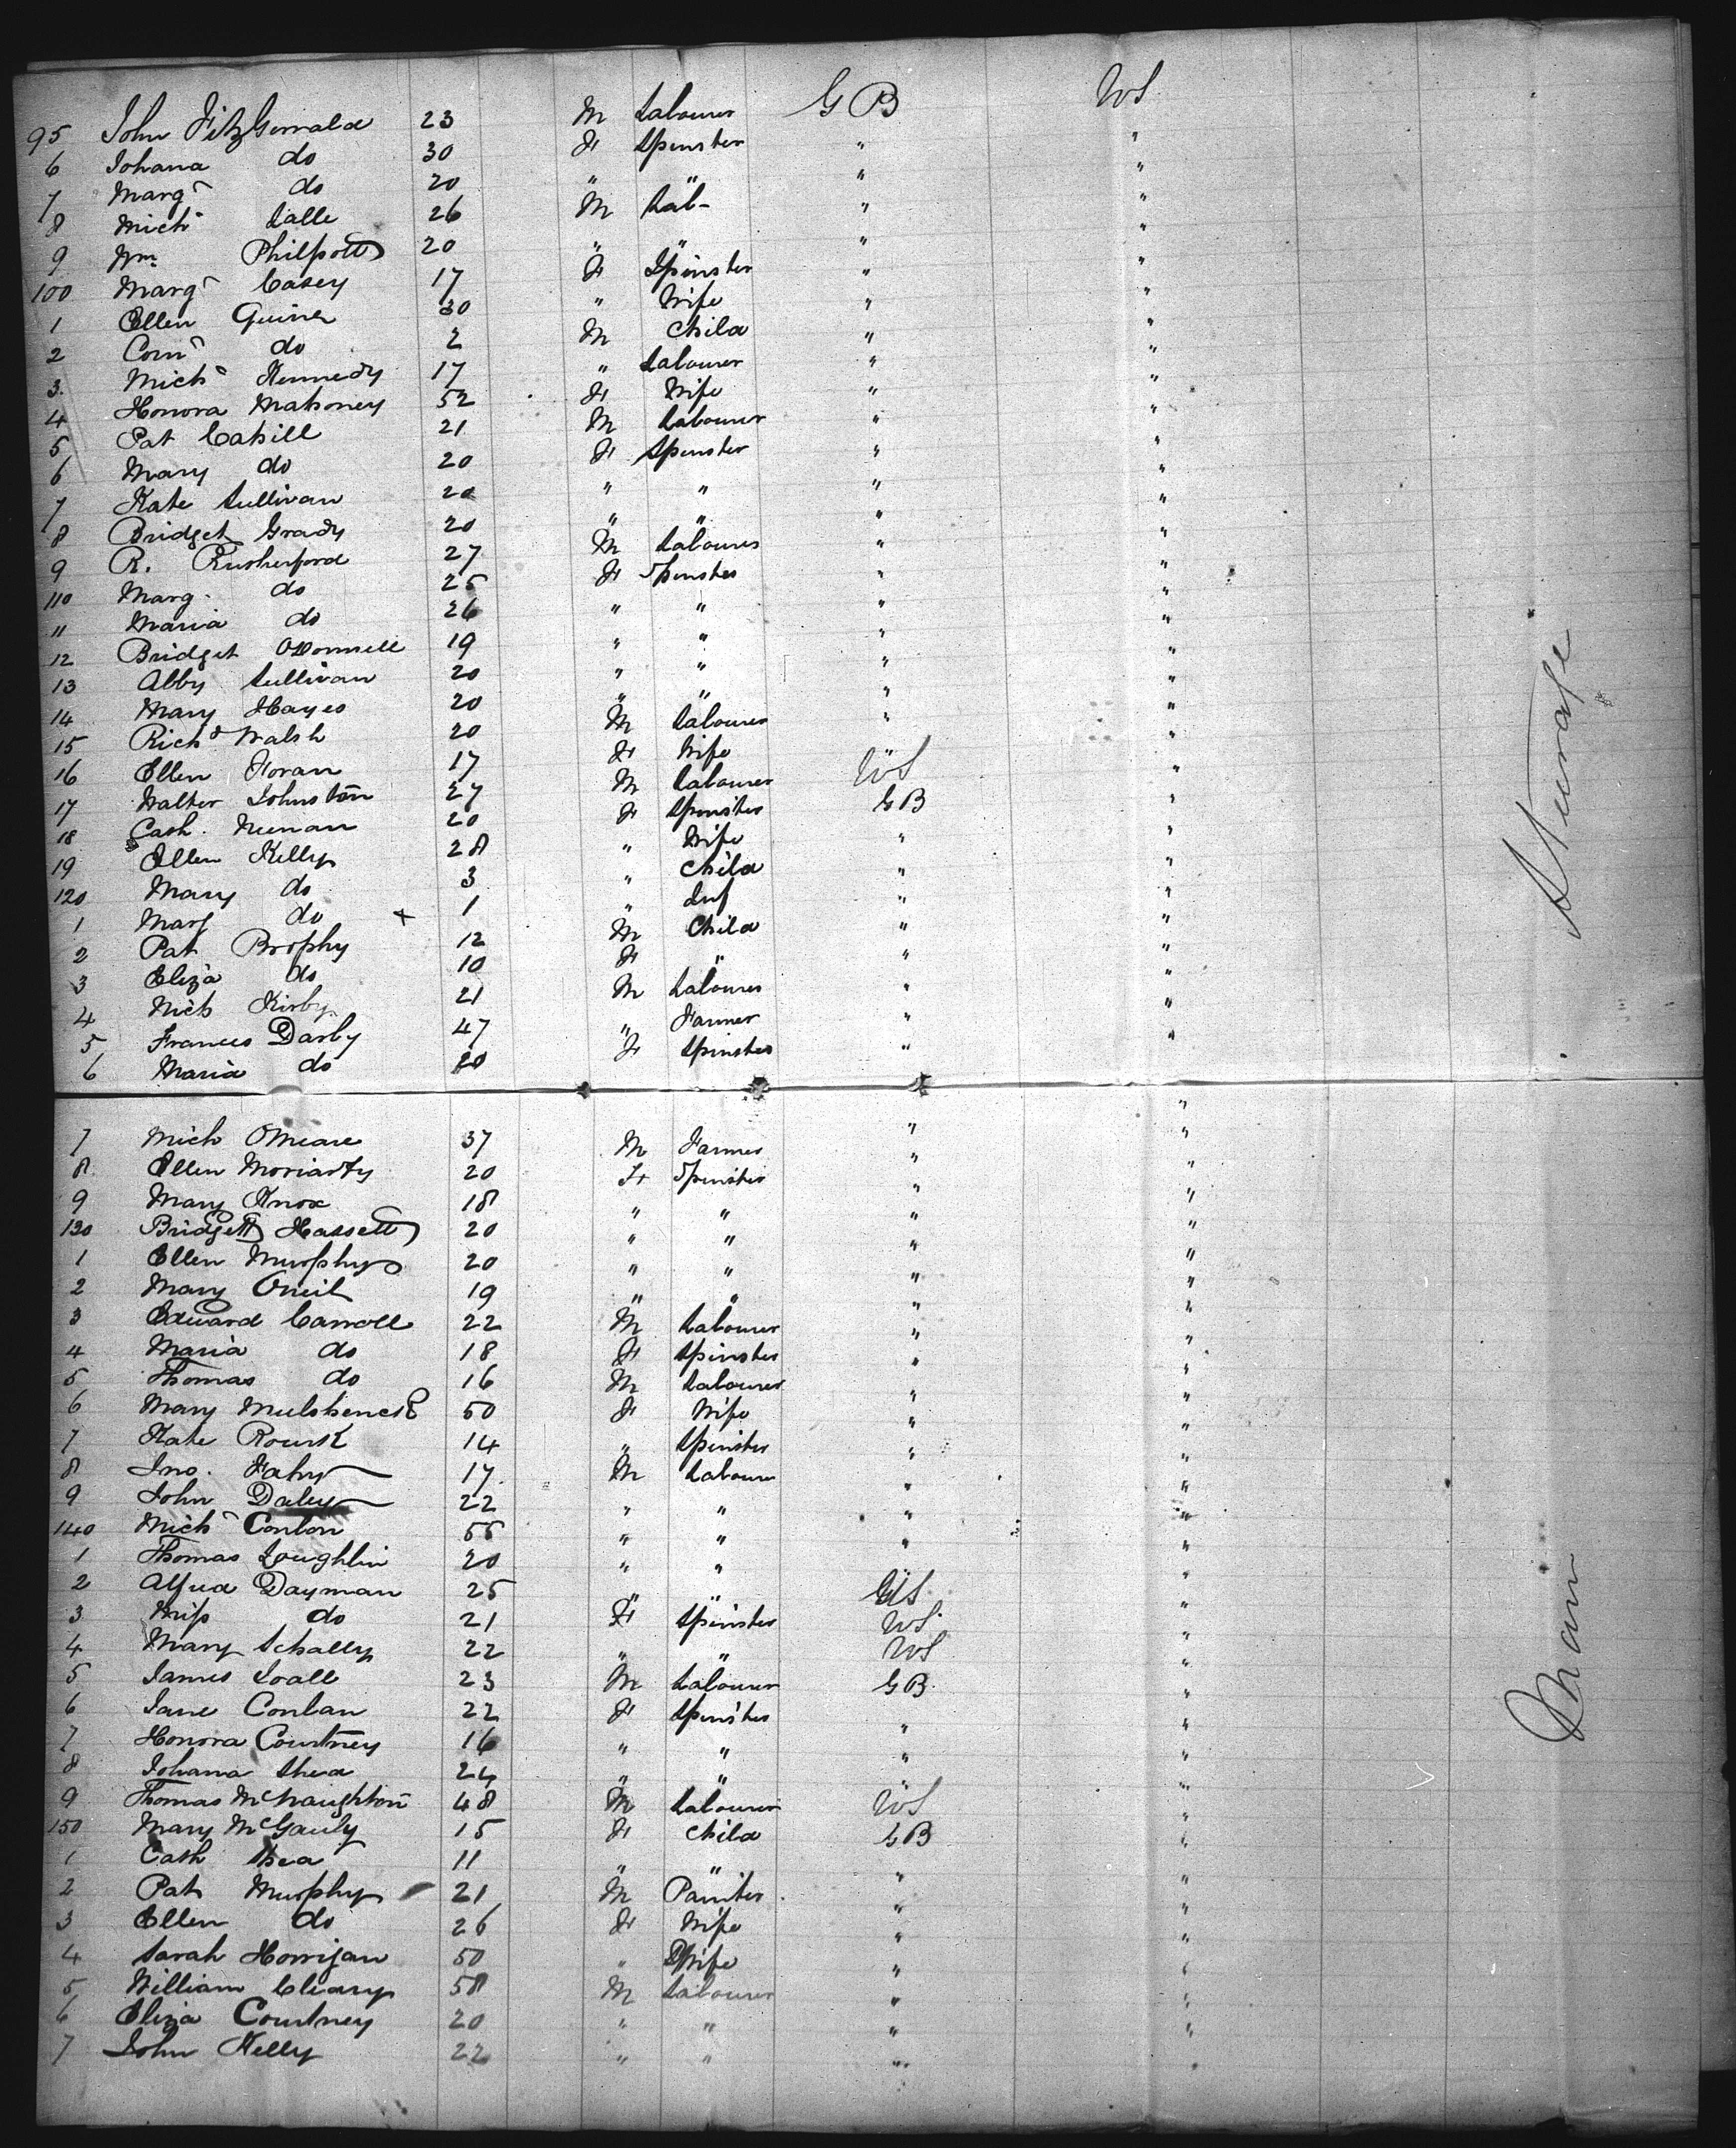 95 John FitzGerrald 23 M Labourer GB US
6 Johana do 30 F Spinster " "
7 Marg do 20 " " " "
8 Mich Lalle 26 M Lab- " "
9 Wm Philpott 20 " " " "
100 Marg Casey 17 F Spinster " "
1 Ellen Guiner 30 " Wife " "
2 Corn do 2 M Child " "
3. Mich Kennedy 17 " Labourer " "
4 Honora Mahoney 52 F Wife " "
5 Pat Cahill 21 M Labourer " "
6 Mary do 20 F Spinster " "
7 Kate Sullivan 20 " " " "
8 Bridget Grady 20 " " " "
9 R. Rusherford 27 M Labourer " "
110 Marg. do 25 F Spinster " "
11 Maria do 26 " " " "
12 Bridget ODonnell 19 " " " "
13 Abby Sullivan 20 " " " "
14 Mary Hayes 20 " " " "
15 Richd Walsh 20 M Labourer " "
16 Ellen Horan 17 F Wife " "
17 Walter Johnston 27 M Labourer US "
18 Cath. Neenan 20 F Spinster GB "
19 Ellen Kelly 28 " Wife " "
120 Mary do 3 " Child " "
1 Marg do x 1 " Inf " "
2 Pat Brophy 12 M Child " "
3 Eliza do 10 F " " "
4 Mich Kirby 21 M Labourer " "
5 Frances Darby 47 " Farmer " "
6 Maria do 20 F Spinster " "
7 Mich OMeare 37 M Farmer " "
8 Ellen Moriarty 20 F Spinster " "
9 Mary Knox 18 " " " "
130 Bridgett Hassett 20 " " " "
1 Ellen Murphy 20 " " " "
2 Mary Oneil 19 " " " "
3 Edward Carroll 22 M Labourer " "
4 Maria do 18 F Spinster " "
5 Thomas do 16 M Labourer " "
6 Mary 50 F Wife " "
7 Kate Rourk 14 " Spinster " "
8 Jno. Fahy 17 M Labourer " "
9 John Daley 22 " " " "
140 Mich Conlon 55 " " " "
1 Thomas Loughlin 20 " " " "
2 Alfred Dayman 25 " " US "
3 Miss do 21 F Spinster US "
4 Mary Schally 22 " " US "
5 James Loall 23 M Labourer GB. "
6 Jane Conlan 22 F Spinster " "
7 Honora Courtney 16 " " " "
8 Johana Shea 24 " " " "
9 Thomas McNaughton 48 M Labourer US "
150 Mary McGauly 15 F Child GB "
1 Cath Shea 11 " " " "
2 Pat Murphy 21 M Painter " "
3 Ellen do 26 F Wife " "
4 Sarah Horrigan 50 " Wife " "
5 William Cleary 58 M Labourer " "
6 Eliza Courtney 20 " " " "
7 John Kelly 22 " " "
Steerage
Main